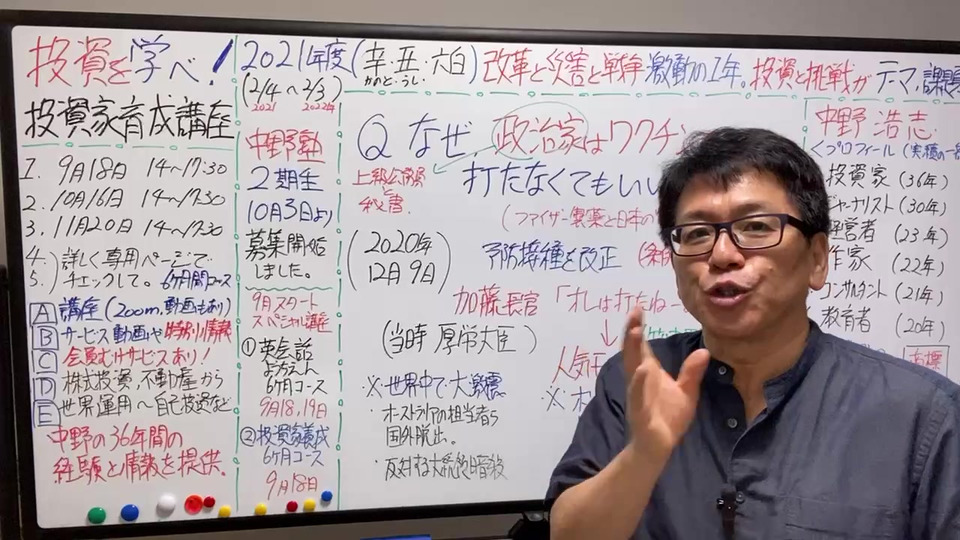 投資を学べ!
投資家育成講座
1. 9月18日 14〜17:30
2. 10月16日 14〜17:30
3. 11月20日 14〜17:30
4.) 詳しく専用ページで
5.) チェックして。6ヶ月間コース
A 講座 (zoom,動画もあり)
B サービス動画や特別情報
C 会員むけサービスあり!
D 株式投資,不動産から
E 世界運用〜自己投資など
中野の36年間の
経験と情報を提供。
2021年度(辛・丑・六白)改革と災害と戦争 激動の1年。投資と挑戦がテマ。課題
かのと・うし
(2/4〜2/3)
2021 2022年
中野塾
2期生
10月3日より
募集開始
しました。
9月スタート
スペシャル講座
① 英会話
6ヶ月コース
9月18,19日
② 投資家養成
6ヶ月コース
9月18日
Q なぜ、政治家はワクチ
上級公務員
と
秘書
打たなくてもいい
(ファイザー製薬と日本の
(2020年
12月9日)
予防接種を改正
加藤長官「オレは打たねー
(当時 厚労大臣)
↓
※世界中で大激震
・オーストラリアの担当者ら
国外脱出。
中野 浩志
<プロフィール(実績の一部
投資家(36年)
ジャーナリスト(30年)
経営者(23年)
作家(22年)
コンサルタント(21年)
教育者(20年)